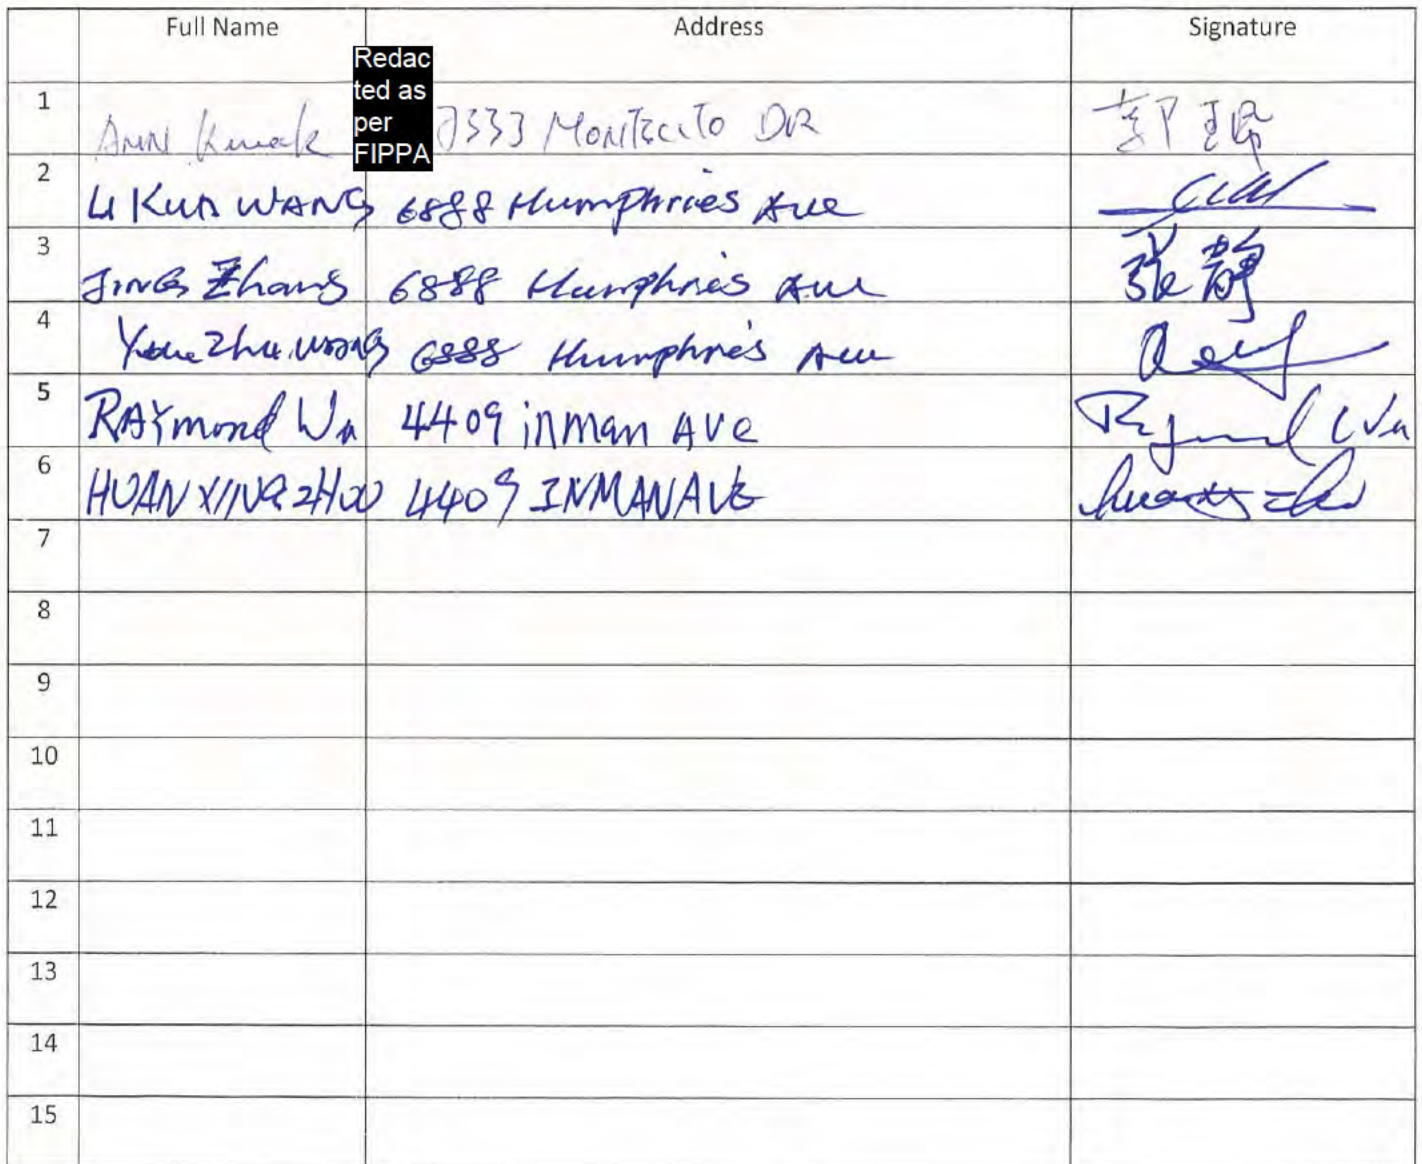 Full Name Address Signature
Redac
ted as
per
FIPPA
1 Ann Kwak 7333 Montecito DR 郭
2 Li Kun WANG 6888 Humphries Ave
3 Jing Zhang 6888 Humphries Ave 张静
4 Zhu Wang 6888 Humphries Ave
5 RAYmond Wu 4409 inman AVe Raymond Wu
6 HUAN XING ZHOU 4409 INMAN AVE
7
8
9
10
11
12
13
14
15